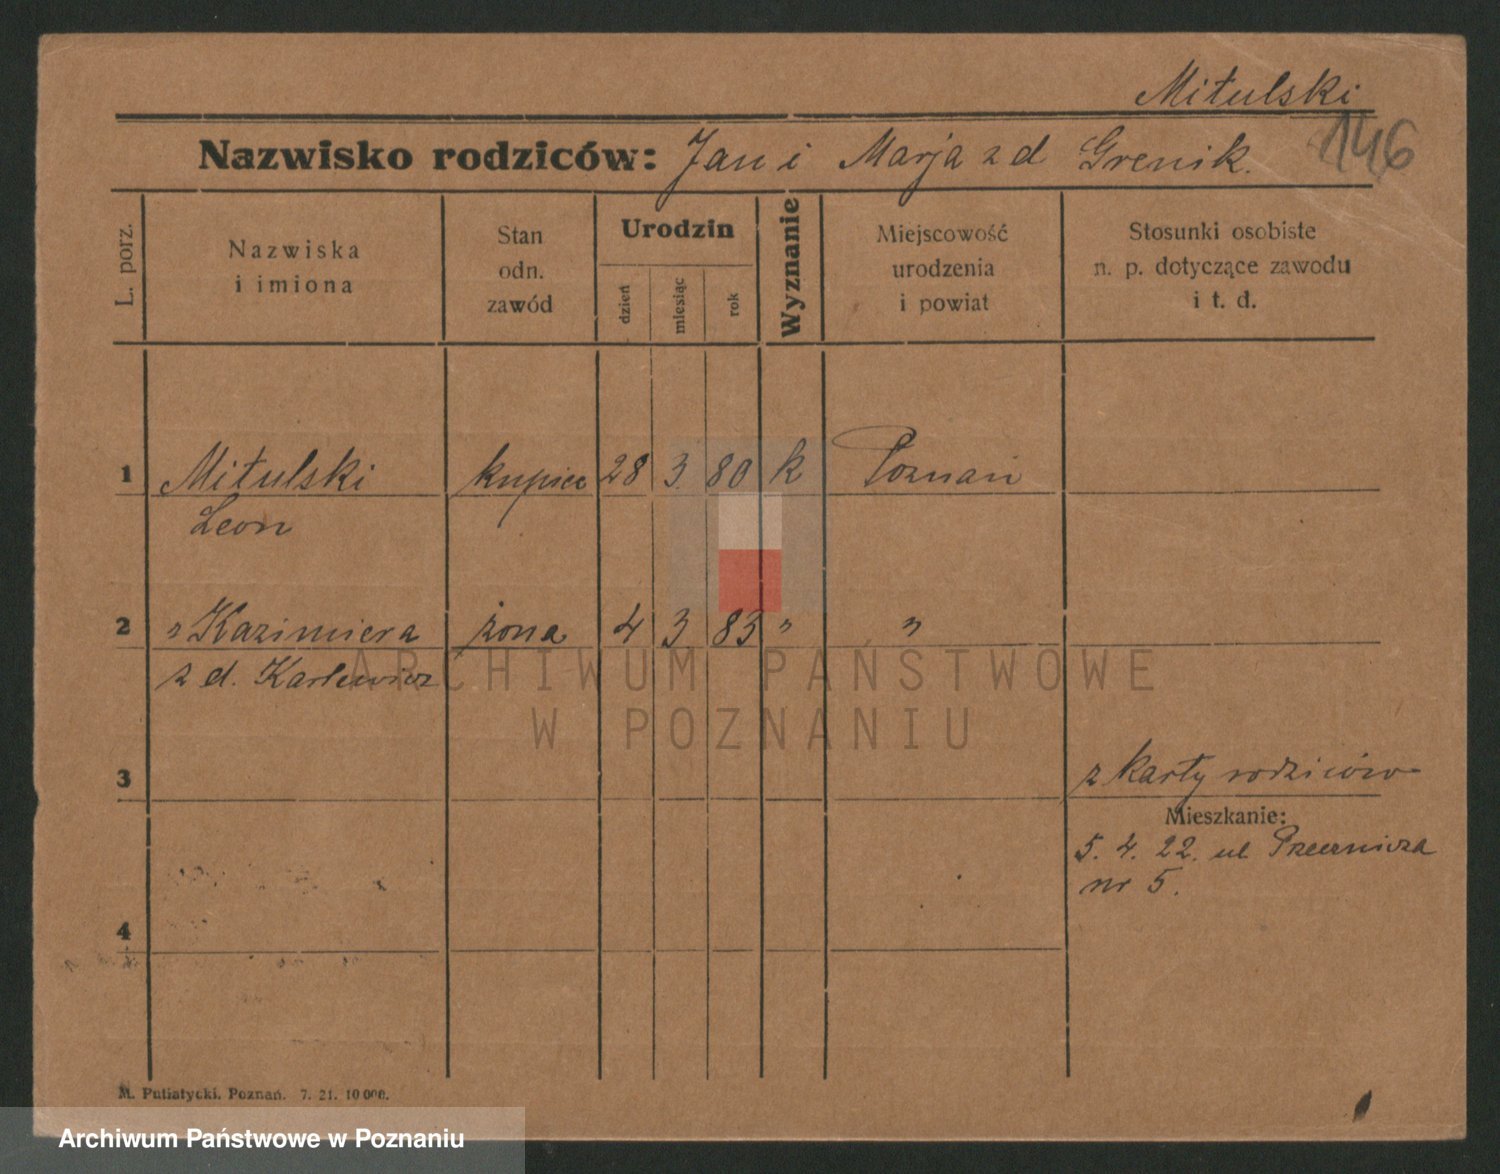 Mitulski
146
Nazwisko rodziców: Jan i Marja z d Grenik.
L. porz.
Nazwiska
i imiona
Stan
odn.
zawód
Urodzin
dzień
miesiąc
rok
Wyznanie
Miejscowość
urodzenia
i powiat
Stosunki osobiste
n. p. dotyczące zawodu
i t. d.
1 Mitulski kupiec 28 3 80 k Poznań
Leon
2 „ Kazimiera żona 4 3 83 „ „
z d. Karlewicz
ARCHIWUM PAŃSTWOWE
W POZNANIU
3 z karty rodziców
Mieszkanie:
5. 4. 22. ul
nr 5.
4
M. Putiatycki, Poznań. 7. 21. 10 000.
Archiwum Państwowe w Poznaniu